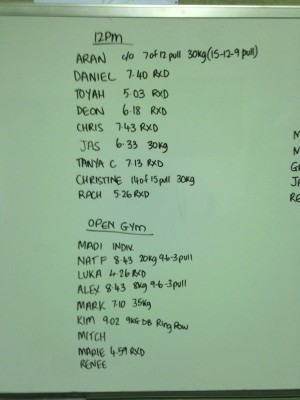 12PM
ARAN c/o 7 of 12 pull 30kg (15-12-9 pull)
DANIEL 7.40 RXD
TOYAH 5.03 RXD
DEON 6.18 RXD
CHRIS 7.43 RXD
JAS 6.33 30kg
TANYA C 7.13 RXD
CHRISTINE 14 of 15 pull 30kg
RACH 5.26 RXD
OPEN GYM
MADI INDIV.
NAT F 8.43 20kg 9-6-3 pull
LUKA 4.26 RXD
ALEX 8.43 8kg 9-6-3 pull
MARK 7.10 35kg
KIM 9.02 9KG DB Ring Row
MITCH
MARIE 4.59 RXD
RENEE
M
M
GA
JA
RE